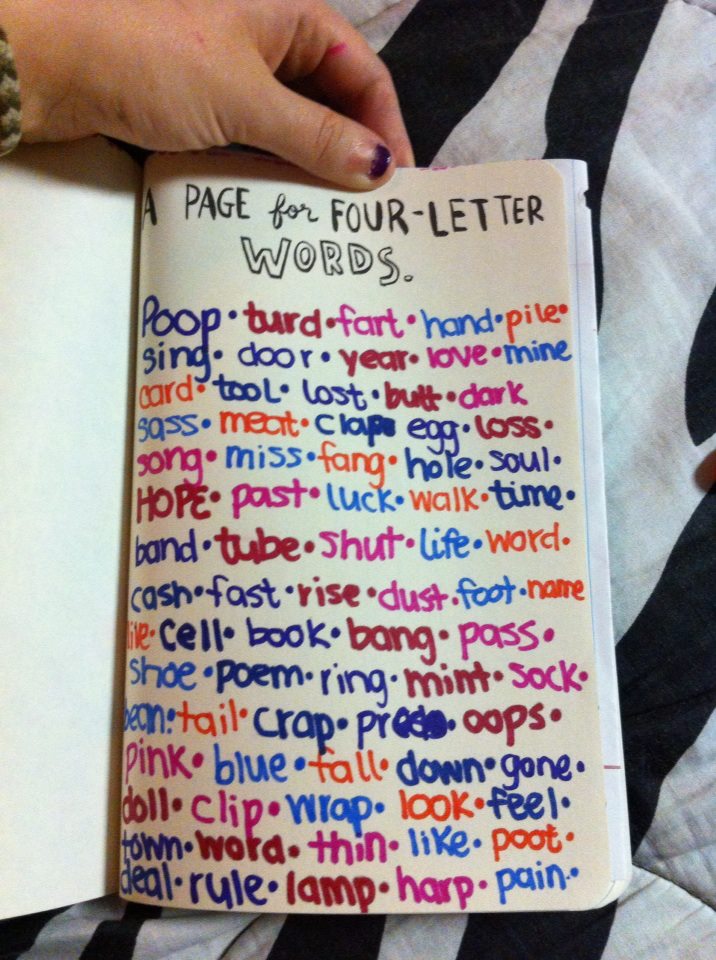 A PAGE for FOUR-LETTER
WORDS.
Poop • turd • fart • hand • pile •
sing • door • year • love • mine
card • tool • lost • butt • dark
sass • meat • clap egg • loss •
song • miss • fang • hole • soul •
HOPE • past • luck • walk • time •
band • tube • shut • life • word •
cash • fast • rise • dust • foot • name
live • cell • book • bang • pass •
shoe • poem • ring • mint • sock •
bean • tail • crap • • oops •
pink • blue • fall • down • gone •
doll • clip • wrap • look • feel •
town • word • thin • like • poot •
deal • rule • lamp • harp • pain •